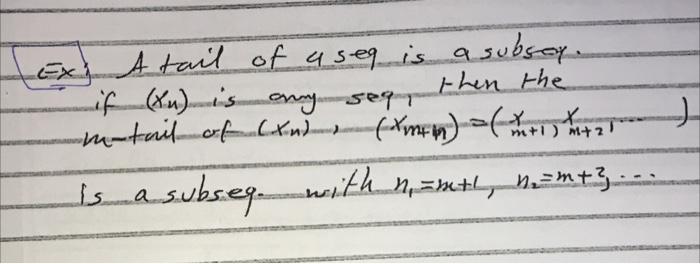 Ex: A tail of a seq is a subseq.
if (xn) is any seq, then the
m-tail of (xn), (xm+n) = (xm+1, xm+2, ... )
is a subseq. with n1=m+1, n2=m+2, ...